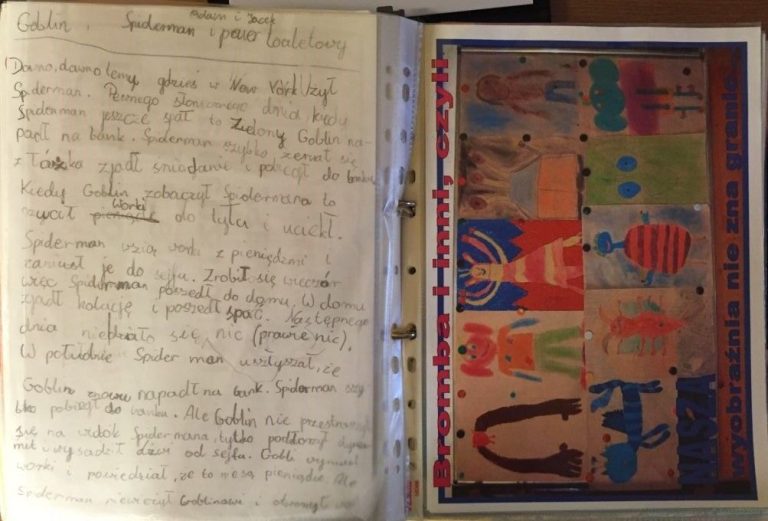 Adam i Jacek
Goblin, Spiderman i paier toaletowy
Dawno, dawno temu, gdzieś w New York żył
Spiderman. Pewnego słonecznego dnia kiedy
Spiderman jeszcze spał to Zielony Goblin na-
padł na bank. Spiderman szybko zerwał się
z łóżka zjadł śniadanie i pobiegł do banku
Kiedy Goblin zobaczył Spidermana to
worki
do tyłu i uciekł.
Spiderman wzią worki z pieniędzmi i
zaniusł je do sejfu. Zrobił się wieczór
więc Spiderman poszedł do domu. W domu
zjadł kolację i poszedł spać. Następnego
dnia niedziało się nic (prawie nic).
W południe Spider man usztyszał, że
Goblin znowu napadł na bank. Spiderman szy
bko pobiegł do banku. Ale Goblin nie przestraszył
się na widok Spidermana tylko podłożył dyna
met i wysadził dzwi od sejfu. Gobli
worki i powiedział, że to niesą pieniądze Ale
Spiderman niewieżył Goblinowi i
Bromba i inni, czyli
NASZA
wyobraźnia nie zna granic